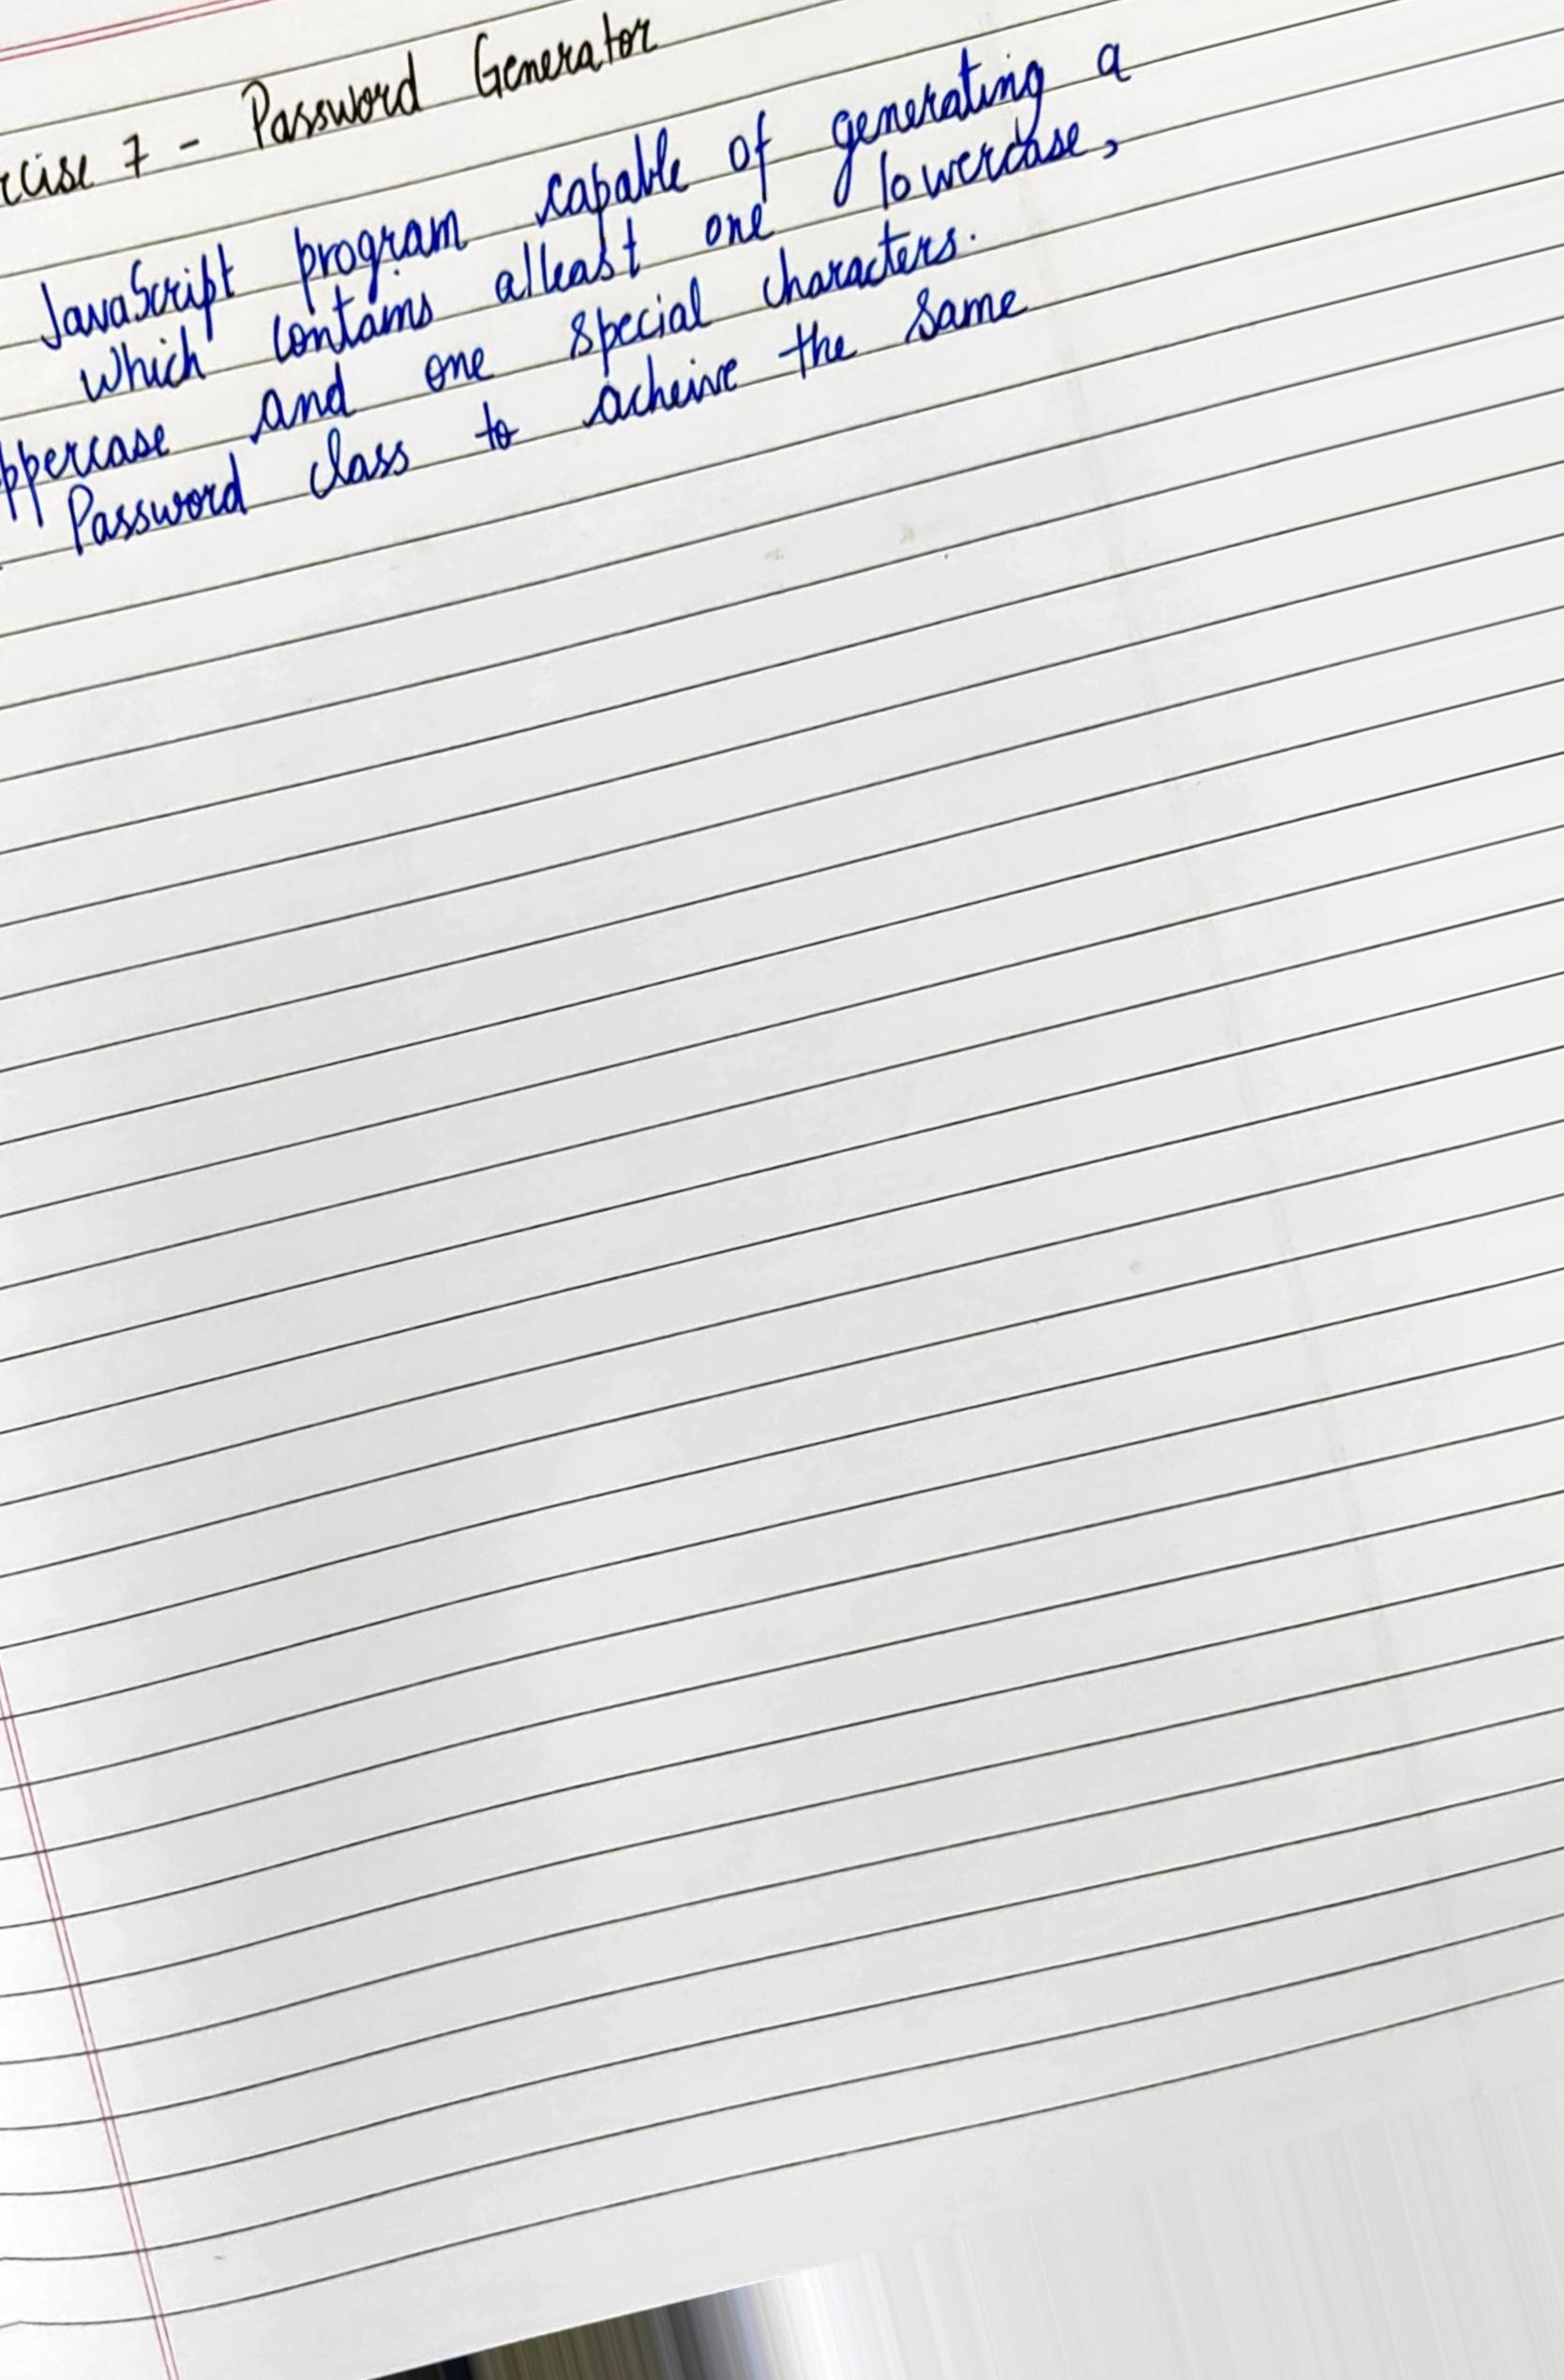 rcise 7 - Password Generator
JavaScript program capable of generating a
which contains atleast one lowercase,
ppercase and one special characters.
Password class to acheive the same